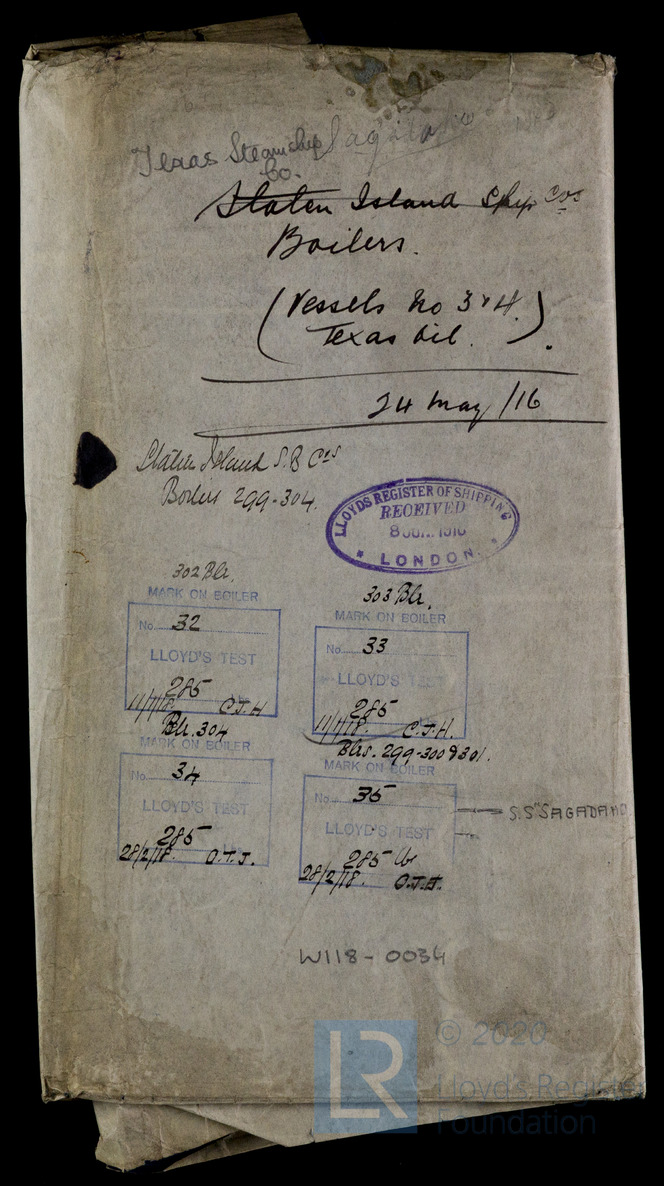 Texas Steamship
Co.
Staten Island Ship Cos
Boilers.
(Vessels No 3 & 4.
Texas Oil.)
24 May /16
Staten Island S.B Cos
Boilers 299-304.
LLOYDS REGISTER OF SHIPPING
RECEIVED
LONDON
302 Blr.
MARK ON BOILER
No. 32
LLOYD'S TEST
285
11/1/18. C.J.H
303 Blr.
MARK ON BOILER
No. 33
LLOYD'S TEST
285
11/1/18. C.J.H.
Blr. 304
MARK ON BOILER
No. 34
LLOYD'S TEST
285
28/2/18. O.J.J.
Blrs. 299-300 & 301.
MARK ON BOILER
No. 35
LLOYD'S TEST
285 lb
28/2/18. O.J.J.
S.S "SAGADAHO
W118-0034
LR
© 2020
Lloyd's Register
Foundation